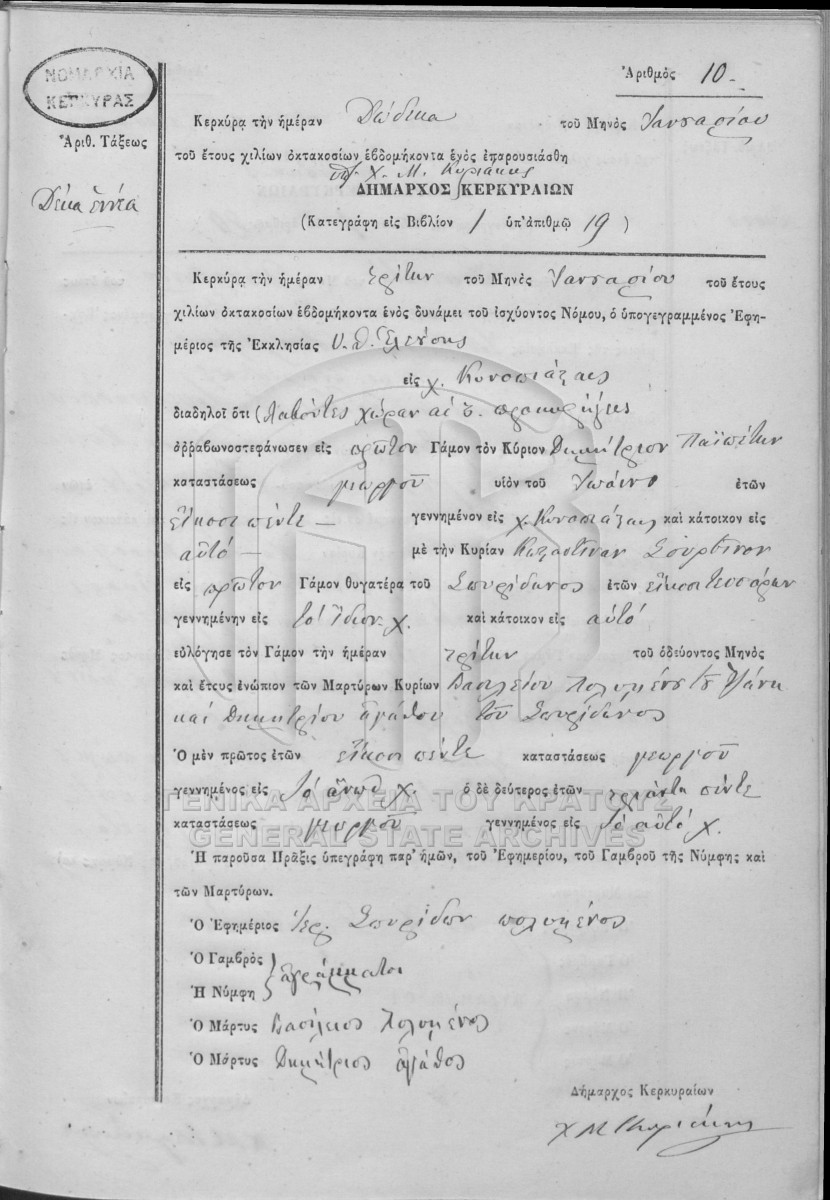 ΝΟΜΑΡΧΙΑ
ΚΕΡΚΥΡΑΣ
Ἀριθμὸς 10
Ἀριθ. Τάξεως
Δέκα ἐννέα
Κερκύρᾳ τὴν ἡμέραν Δώδεκα τοῦ Μηνὸς Ἰανουαρίου
τοῦ ἔτους χιλίων ὀκτακοσίων ἑβδομήκοντα ἑνὸς ἐπαρουσιάσθη
Χ. Μ. Κυριάκης
ΔΗΜΑΡΧΟΣ ΚΕΡΚΥΡΑΙΩΝ
(Κατεγράφη εἰς Βιβλίον 1 ὑπ' ἀριθμῷ 19)
Κερκύρᾳ τὴν ἡμέραν τρίτην τοῦ Μηνὸς Ἰανουαρίου τοῦ ἔτους
χιλίων ὀκτακοσίων ἑβδομήκοντα ἑνὸς δυνάμει τοῦ ἰσχύοντος Νόμου, ὁ ὑπογεγραμμένος Ἐφη-
μέριος τῆς Ἐκκλησίας Υ. Θ. Ἐλεούσης
εἰς χ. Κυνοπιάσταις
διαδηλοῖ ὅτι (λαβόντες χώραν αἱ προκηρύξεις
ἀῤῥαβωνοστεφάνωσεν εἰς πρῶτον Γάμον τὸν Κύριον Δημήτριον Παϊπέτην
καταστάσεως γεωργοῦ υἱὸν τοῦ Ἰωάννου ἐτῶν
εἴκοσι πέντε – γεννημένον εἰς χ. Κυνοπιάσταις καὶ κάτοικον εἰς
αὐτό – μὲ τὴν Κυρίαν Κωσταντίναν
εἰς πρῶτον Γάμον θυγατέρα τοῦ Σπυρίδωνος ἐτῶν εἴκοσι τεσσάρων
γεννημένην εἰς τὸ ἴδιον χ. καὶ κάτοικον εἰς αὐτό
εὐλόγησε τὸν Γάμον τὴν ἡμέραν τρίτην τοῦ ὁδεύοντος Μηνὸς
καὶ ἔτους ἐνώπιον τῶν Μαρτύρων Κυρίων Βασιλείου Πολυμένου τοῦ
καὶ Δημητρίου Ἀγάθου τοῦ Σπυρίδωνος
Ὁ μὲν πρῶτος ἐτῶν εἴκοσι πέντε καταστάσεως γεωργοῦ
γεννημένος εἰς τὸ ἄνωθ. χ. ὁ δὲ δεύτερος ἐτῶν τριάντα πέντε
ΓΕΝΙΚΑ ΑΡΧΕΙΑ ΤΟΥ ΚΡΑΤΟΥΣ
καταστάσεως γεωργοῦ γεννημένος εἰς τὸ αὐτό χ.
GENERAL STATE ARCHIVES
Ἡ παροῦσα Πρᾶξις ὑπεγράφη παρ' ἡμῶν, τοῦ Ἐφημερίου, τοῦ Γαμβροῦ τῆς Νύμφης καὶ
τῶν Μαρτύρων.
Ὁ Ἐφημέριος Ἱερ. Σπυρίδων Πολυμένος
Ὁ Γαμβρὸς
ἀγράμματοι
Ἡ Νύμφη
Ὁ Μάρτυς Βασίλειος Πολυμένος
Ὁ Μάρτυς Δημήτριος Ἀγάθος
Δήμαρχος Κερκυραίων
Χ Μ Κυριάκης